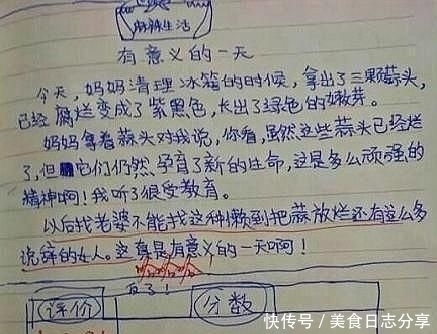 麻辣生活
有意义的一天
今天，妈妈清理冰箱的时候，拿出了三颗蒜头，
已经腐烂变成了紫黑色，长出了绿色的嫩芽。
妈妈拿着蒜头对我说，你看，虽然这些蒜头已经烂
了，但它们仍然孕育了新的生命，这是多么顽强的
精神啊！我听了很受教育。
以后找老婆不能找这种懒到把蒜放烂还有这么多
说辞的女人。这真是有意义的一天啊！
反了！
评价
分数
快传号／美食日志分享